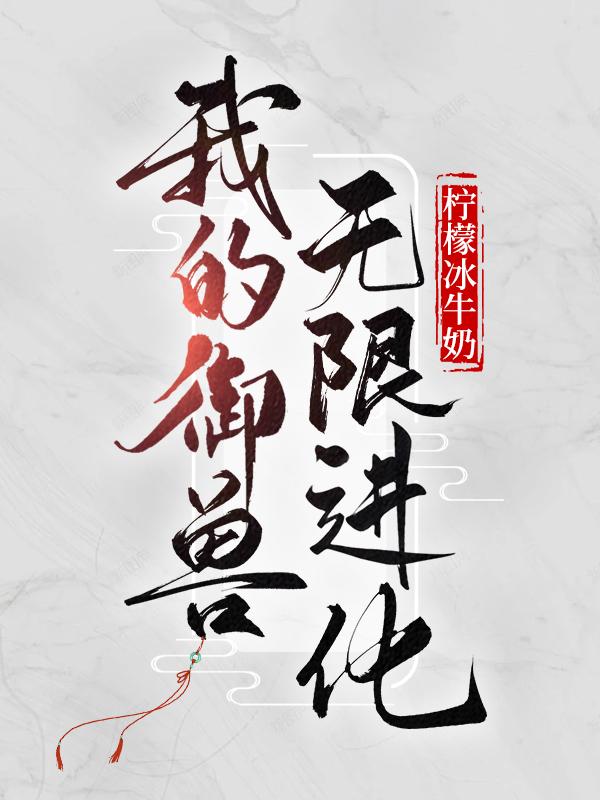 我的御兽
无限进化
柠檬冰牛奶